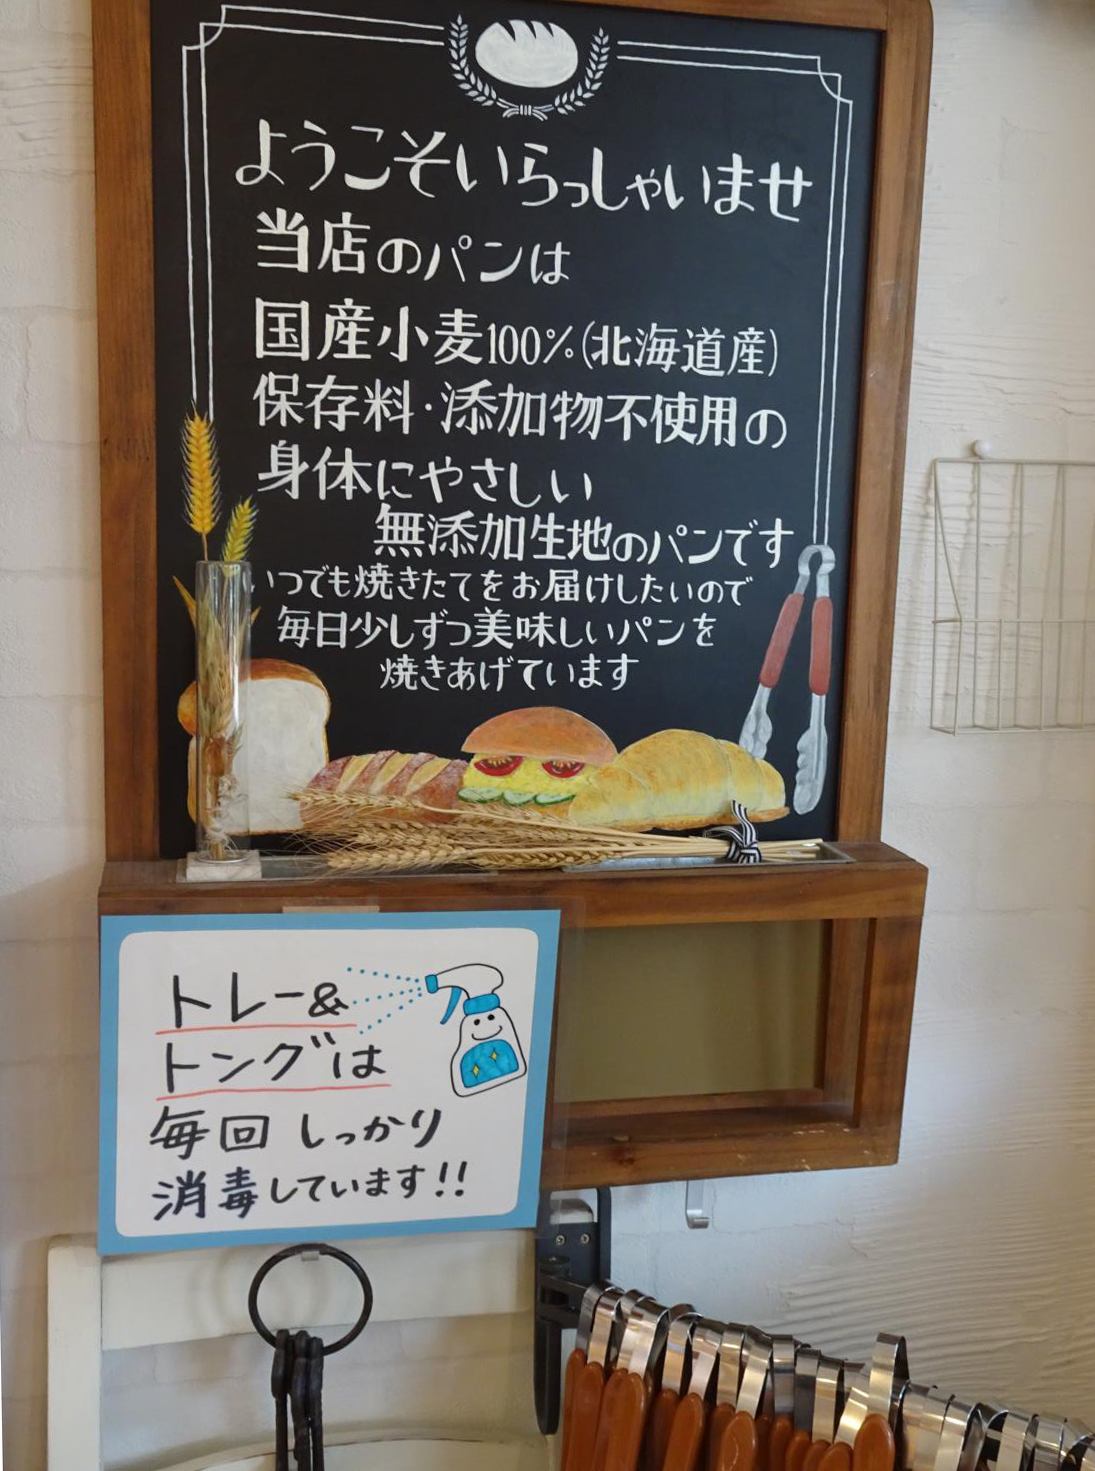 ようこそいらっしゃいませ
当店のパンは
国産小麦100%(北海道産)
保存料・添加物不使用の
身体にやさしい
無添加生地のパンです
いつでも焼きたてをお届けしたいので
毎日少しずつ美味しいパンを
焼きあげています
トレー&
トングは
毎回 しっかり
消毒しています!!